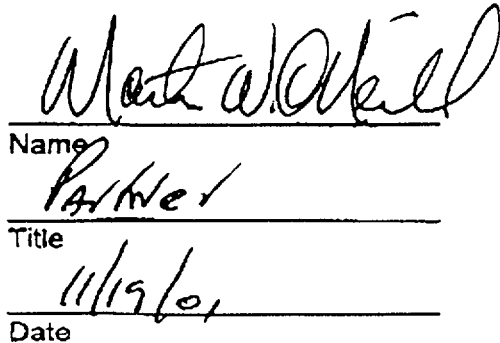 Martin W. O'Neill
Name
Partner
Title
11/19/01
Date